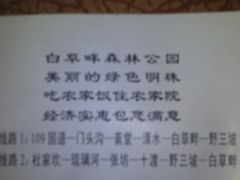 白草畔森林公园
美丽的绿色明珠
吃农家饭住农家院
经济实惠包您满意
线路1:109国道—门头沟—斋堂—清水—白草畔—野三坡
线路2:杜家坎—琉璃河—张坊—十渡—野三坡—白草畔